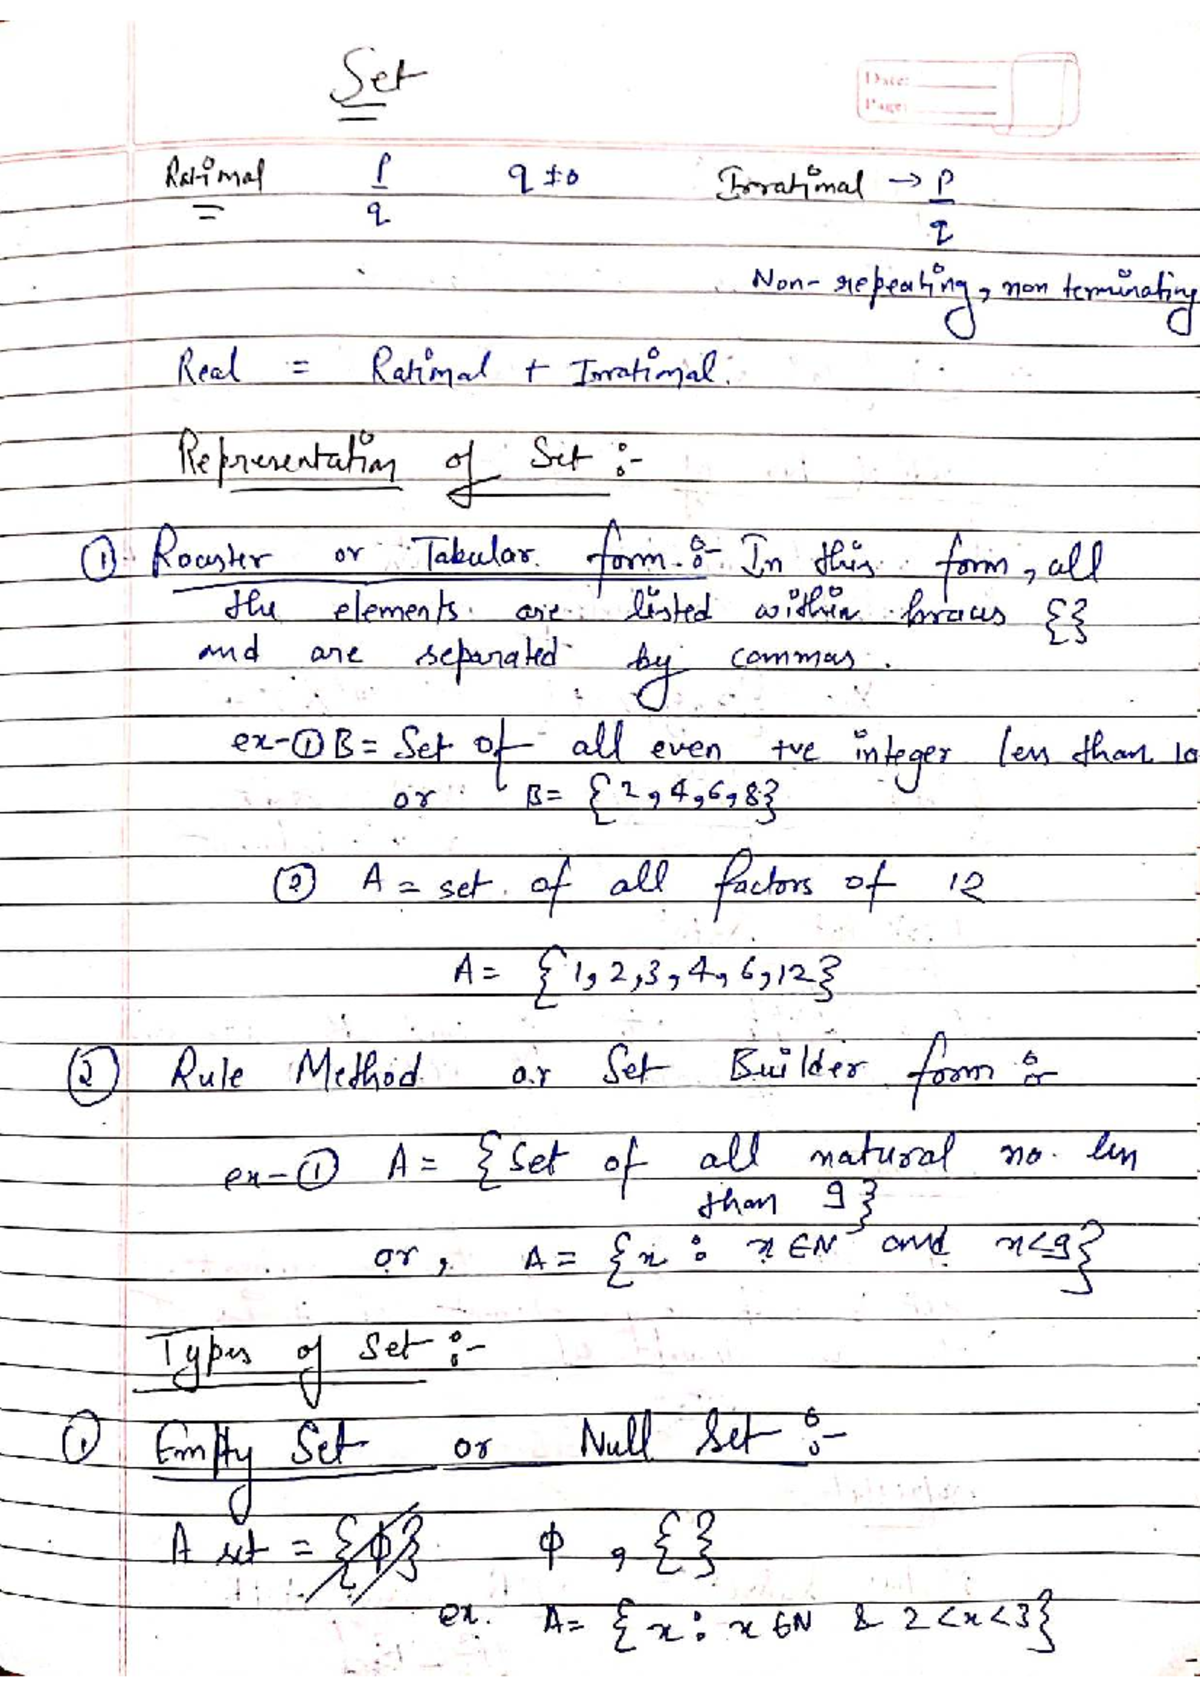 Set
Date:
Page:
Rational p/q q≠0 Irrational → p/q
Non-repeating, non terminating
Real = Rational + Irrational.
Representation of Set :-
① Rooster or Tabular form :- In this form, all
the elements are listed within braces {}
and are separated by commas.
ex-① B = Set of all even +ve integer less than 10
or B = {2, 4, 6, 8}
② A = set of all factors of 12
A = {1, 2, 3, 4, 6, 12}
② Rule Method or Set Builder form :-
ex-① A = {Set of all natural no. less
than 9}
or, A = {x : x ∈ N and x < 9}
Types of Set :-
① Empty Set or Null Set :-
A set = {ϕ} ϕ , {}
ex. A = {x : x ∈ N & 2 < x < 3}